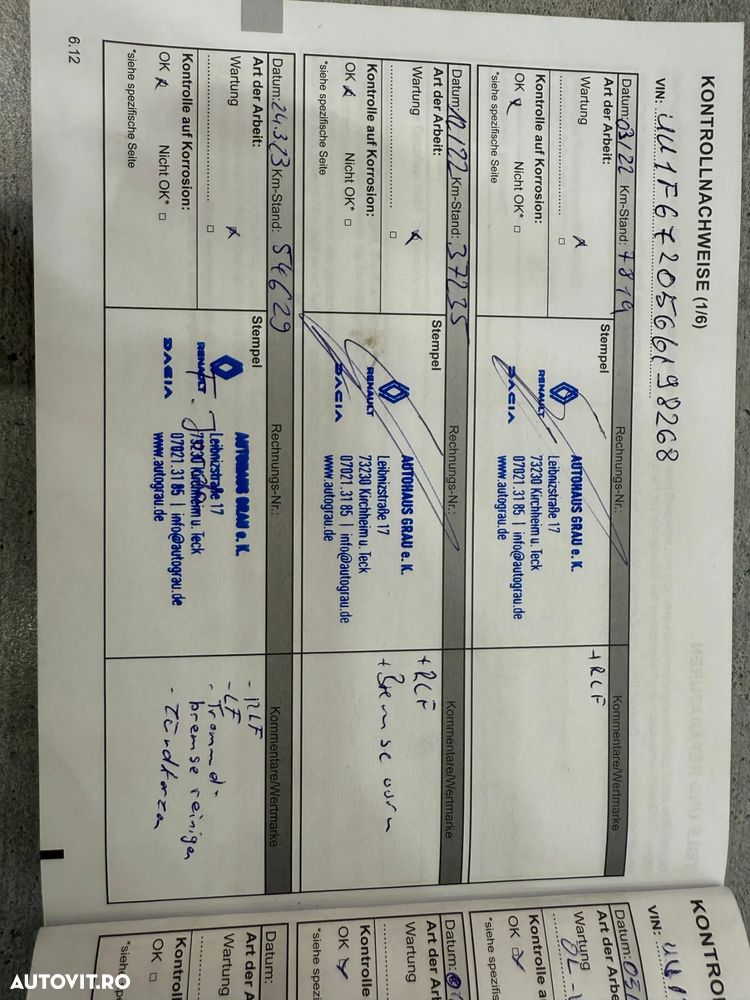 KONTROLLNACHWEISE (1/6)
VIN: UU1F6720566198268
Datum: 03/22 Km-Stand: 7819
Rechnungs-Nr.:
Kommentare/Wertmarke
Art der Arbeit:
Wartung
Kontrolle auf Korrosion:
OK Nicht OK*
*siehe spezifische Seite
Stempel
RENAULT
DACIA
AUTOHAUS GRAU e. K.
Leibnizstraße 17
73230 Kirchheim u. Teck
07021.31 85 | info@autograu.de
www.autograu.de
+ RLF
Datum: 12/22 Km-Stand: 37235
Rechnungs-Nr.:
Kommentare/Wertmarke
Art der Arbeit:
Wartung
Kontrolle auf Korrosion:
OK Nicht OK*
*siehe spezifische Seite
Stempel
RENAULT
DACIA
AUTOHAUS GRAU e. K.
Leibnizstraße 17
73230 Kirchheim u. Teck
07021.31 85 | info@autograu.de
www.autograu.de
+ RLF
+ Bremse vorn
Datum: 24.3/3 Km-Stand: 54629
Rechnungs-Nr.:
Kommentare/Wertmarke
Art der Arbeit:
Wartung
Kontrolle auf Korrosion:
OK Nicht OK*
*siehe spezifische Seite
Stempel
RENAULT
DACIA
AUTOHAUS GRAU e. K.
Leibnizstraße 17
73230 Kirchheim u. Teck
07021.31 85 | info@autograu.de
www.autograu.de
- RLF
- LF
- Trommel-
bremse reinigen
- Zündkerzen
6.12
KONTRO
VIN: UU1
Datum: 03/
Art der Arb
Wartung
Kontrolle a
OK
*siehe spezifis
Datum:
Art der A
Wartung
Kontrolle
OK
*siehe spezi
Datum:
Art der A
Wartung
Kontroll
OK
*siehe spe
AUTOVIT.RO